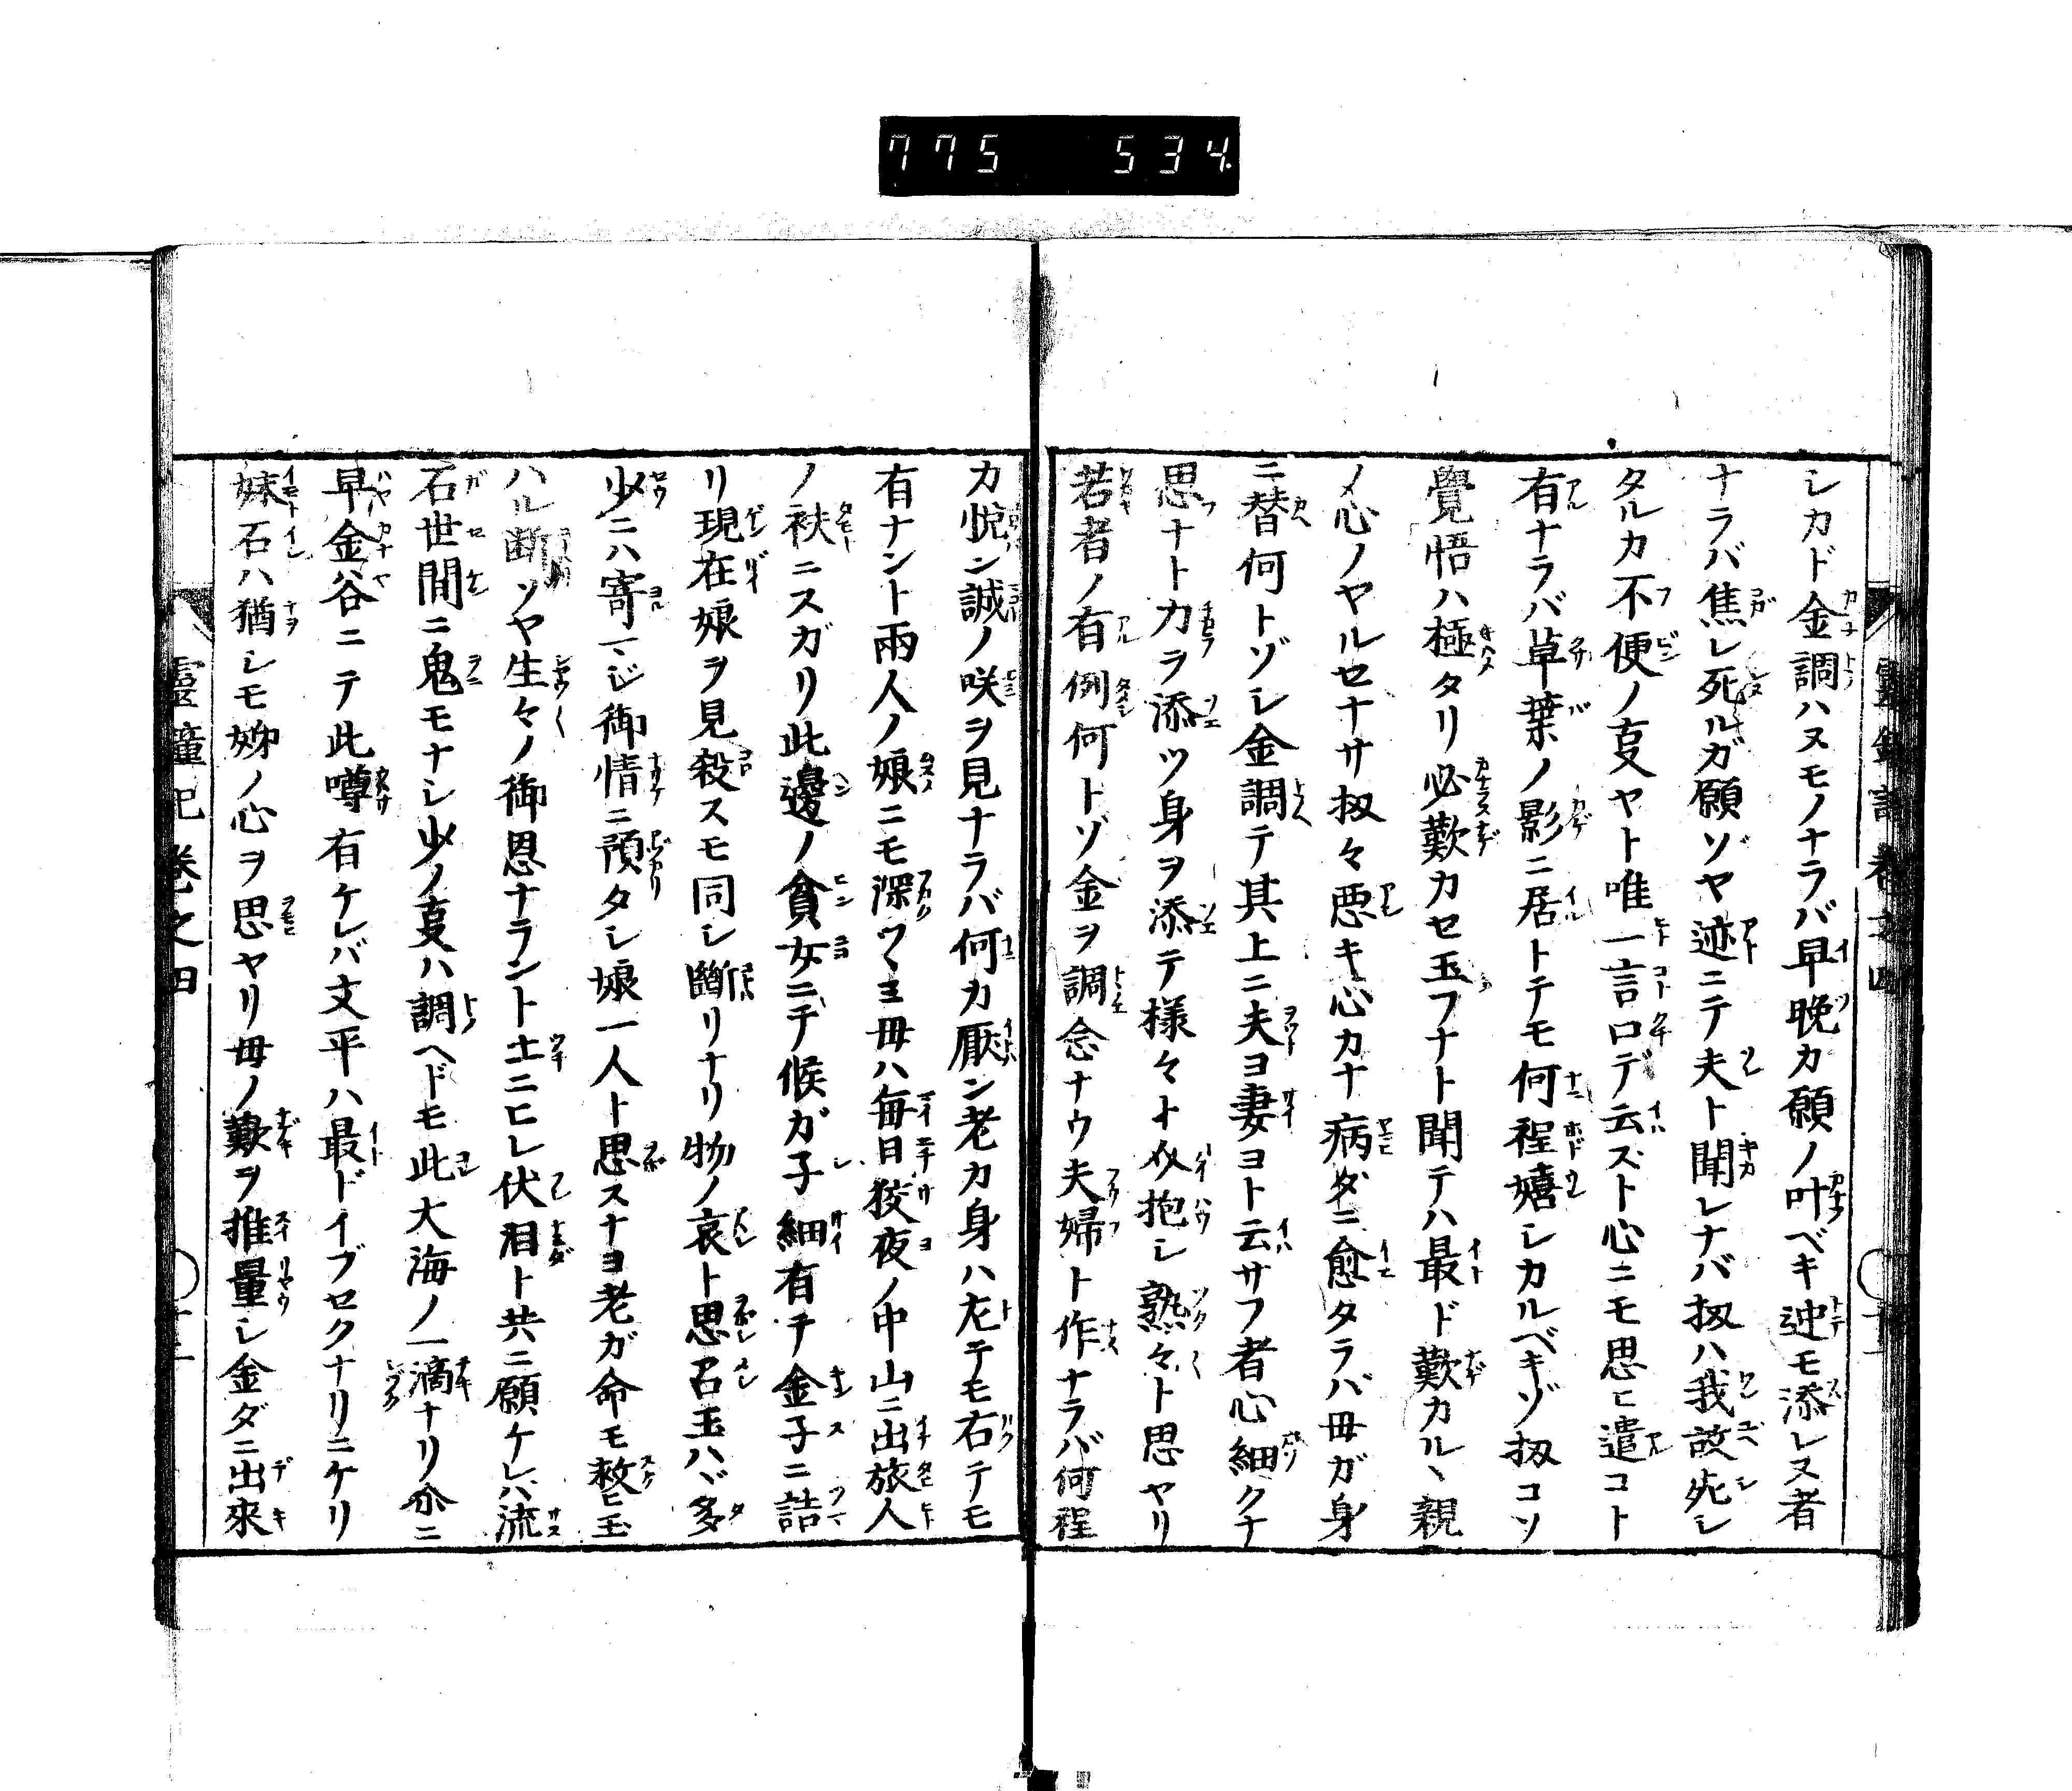 775 534
シカド金調ハヌモノナラバ早晩カ願ノ叶ベキ迚モ添レヌ者
ナラバ焦レ死ルガ願ゾヤ迹ニテ夫ト聞レナバ扨ハ我故死シ
タルカ不便ノ㕝ヤト唯一言口デ云ズト心ニモ思ヒ遣コト
有ナラバ草葉ノ影ニ居トテモ何程嬉シカルベキゾ扨コソ
覺悟ハ極タリ必歎カセ玉フナト聞テハ最ド歎カルヽ親
ノ心ノヤルセナサ扨々悪キ心カナ病ダニ愈タラバ母ガ身
ニ替何トゾシ金調テ其上ニ夫ヨ妻ヨト云サフ者心細クナ
思ナト力ラ添ツ身ヲ添テ様々ト介抱シ熟々ト思ヤリ
若者ノ有例何トゾ金ヲ調念ナウ夫婦ト作ナラバ何程
カ悦ン誠ノ咲ヲ見ナラバ何カ厭ン老カ身ハ左テモ右テモ
有ナント兩人ノ娘ニモ深ツヽミ母ハ毎日狡夜ノ中山ニ出旅人
ノ袂ニスガリ此邊ノ貧女ニテ候ガ子細有テ金子ニ詰
リ現在娘ヲ見殺スモ同シ斷リナリ物ノ哀ト思召玉ハヾ多
少ニハ寄マジ御情ニ預タシ娘一人ト思スナヨ老ガ命モ救ヒ玉
ハル断ソヤ生々ノ御恩ナラント土ニヒレ伏泪ト共ニ願ケレハ流
石世間ニ鬼モナシ少ノ㕝ハ調ヘドモ此大海ノ一滴ナリ尒ニ
早金谷ニテ此噂有ケレバ文平ハ最ドイブセクナリニケリ
妹石ハ猶シモ姊ノ心ヲ思ヤリ母ノ歎ヲ推量シ金ダニ出來
卷之四